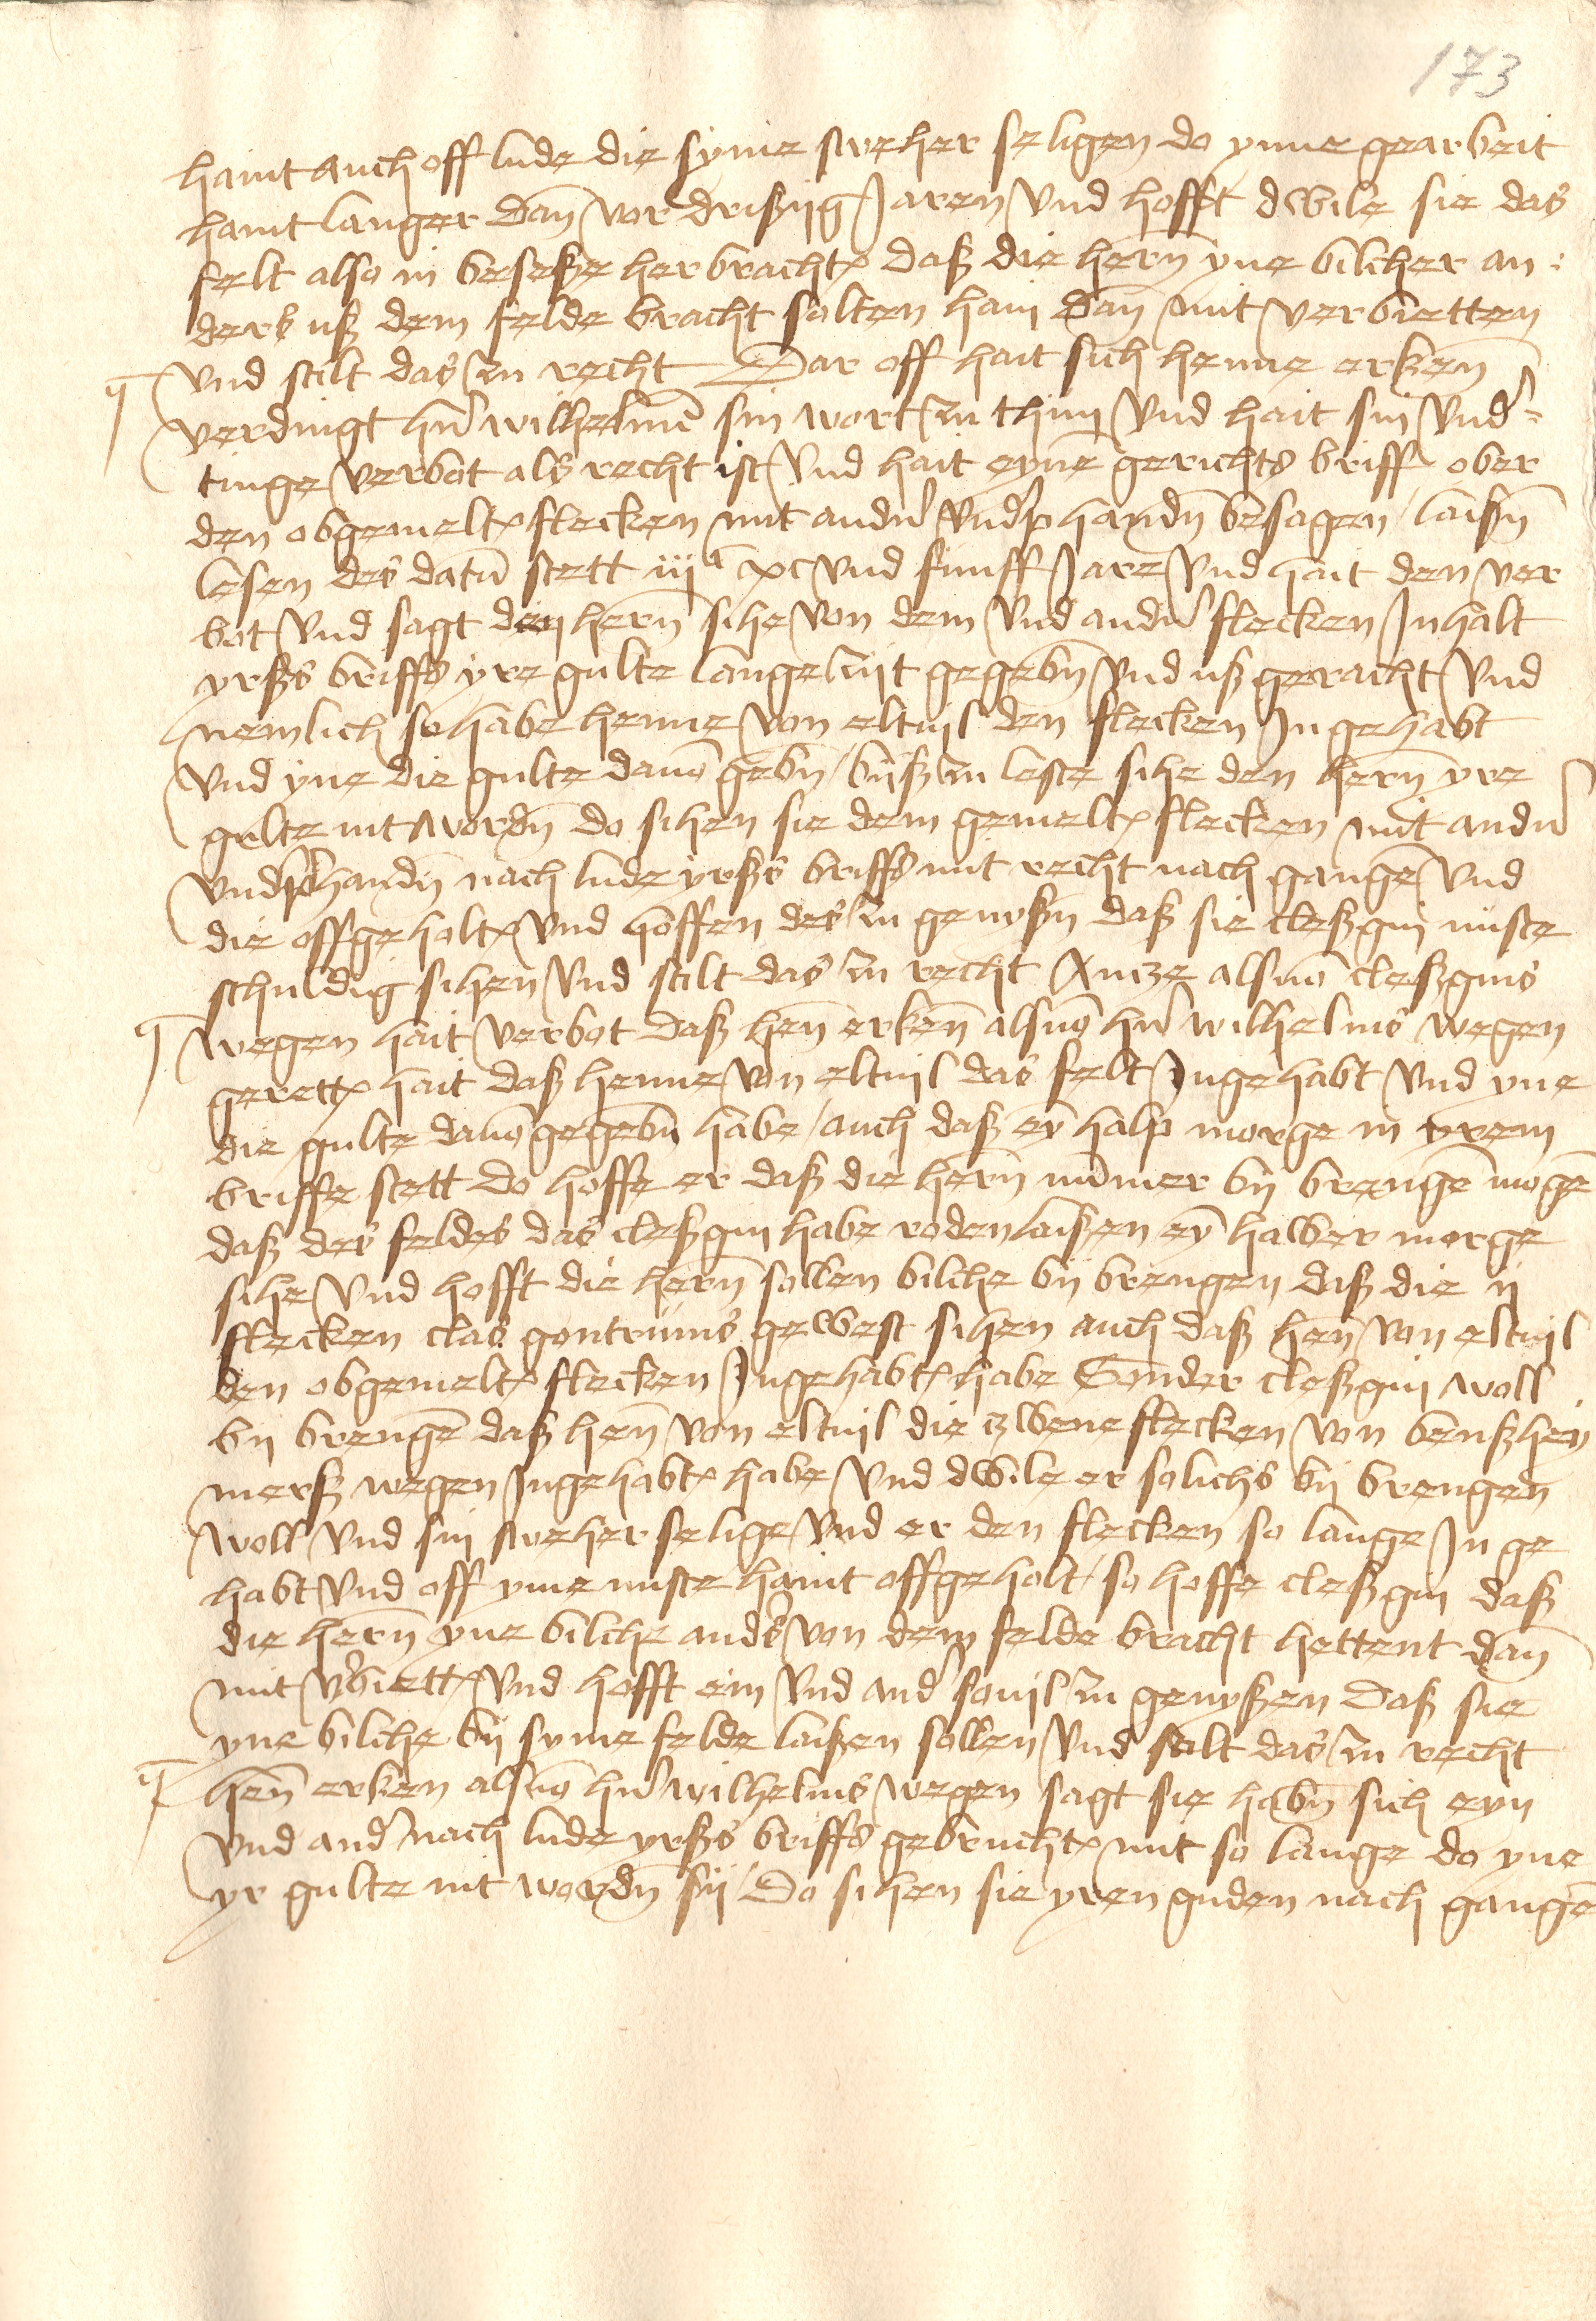 173
haint auch off lude die syme sweher seligen do ynne gearbeit
haint langer dan̄ vor drißzijg Jaren vnd hofft dwile sie das
felt also in beseße herbracht daß die hern̄ yne bilcher an:
ders uß dem felde bracht solten hain dan̄ mit verbietten
vnd stilt das zu recht Dar off hait sich henne erken̄
verdingt hr̄n wilhelmē sin wort zu thun vnd hait sin vnd̓=
tinge verbot als recht ist vnd hait eynē gerichts briff ober
den obgemelt flecken mit andn̓ vnd̓phandn̄ besagen laißn̄
lesen des datū stett iiijͨ xc vnd funff Jare vnd hait den ver
bot vnd sagt den hern̄ sihe von dem vnd andn̓ flecken Inhalt
yrßs briffs yre gulte lange zijt gegebn̄ vnd ußgeracht vnd
nemlich so habe henne von eltuil den flecken Ingehabt
vnd yne die gulte dauō gebn̄ / biß zu leste sihe den hern̄ yre
gulte nit wordn̄ do sihen sie dem gemelt flecken mit andn̓
vnd̓phandn̄ nach lude yrßs briffs mit recht nach gangē vnd
die offgeholt vnd hoffen des zu genyßn̄ daß sie cleßgin niiste
schuldig sihen vnd stilt das zu recht Antze alsuō cleßgins
wegen hait verbot daß hen̄ erken̄ alsuō hr̄n wilhelms wegen
gerett hait daß henne von eltuil das felt Ingehabt vnd yne
die gulte dauō gegebn̄ habe / auch daß eȳ halp morge in yrem
briffe stett do hoffe er daß die hern̄ nūmer bij brengē mogē
daß des feldes das cleßgin habe roden laißen eȳ halber morge
sihe vnd hofft die hern̄ sollen bilche bij brengen daß die ij
flecken clas gontrums gewest sihen auch daß hen̄ von eltuil
den obgemelt flecken Ingehabt habe Sonder cleßgin woll
bij brengē daß hen̄ von eltuil die zwene flecken von benßhey
merß wegen Ingehabt habe vnd dwile er solichs bij brengen
woll vnd sin sweher selige vnd er den flecken so lange In ge
habt vnd off yme niiste haint offgeholt / so hoffe cleßgin daß
die hern̄ yne bilche and̓s von dem felde bracht hettent dan̄
mit v̓biett vnd hofft eim vnd and̓ souil zu genyßen daß sie
yne bilche bij syme felde laißen sollen vnd stilt das zu recht
hen̄ erken alsuō hr̄n wilhelms wegen sagt sie habn̄ sich eyn
vnd and̓ nach lude yrßs briffs gebrucht mit so lange do yne
yr gulte nit wordn̄ sij / Do sihen sie yren guden nach gangē